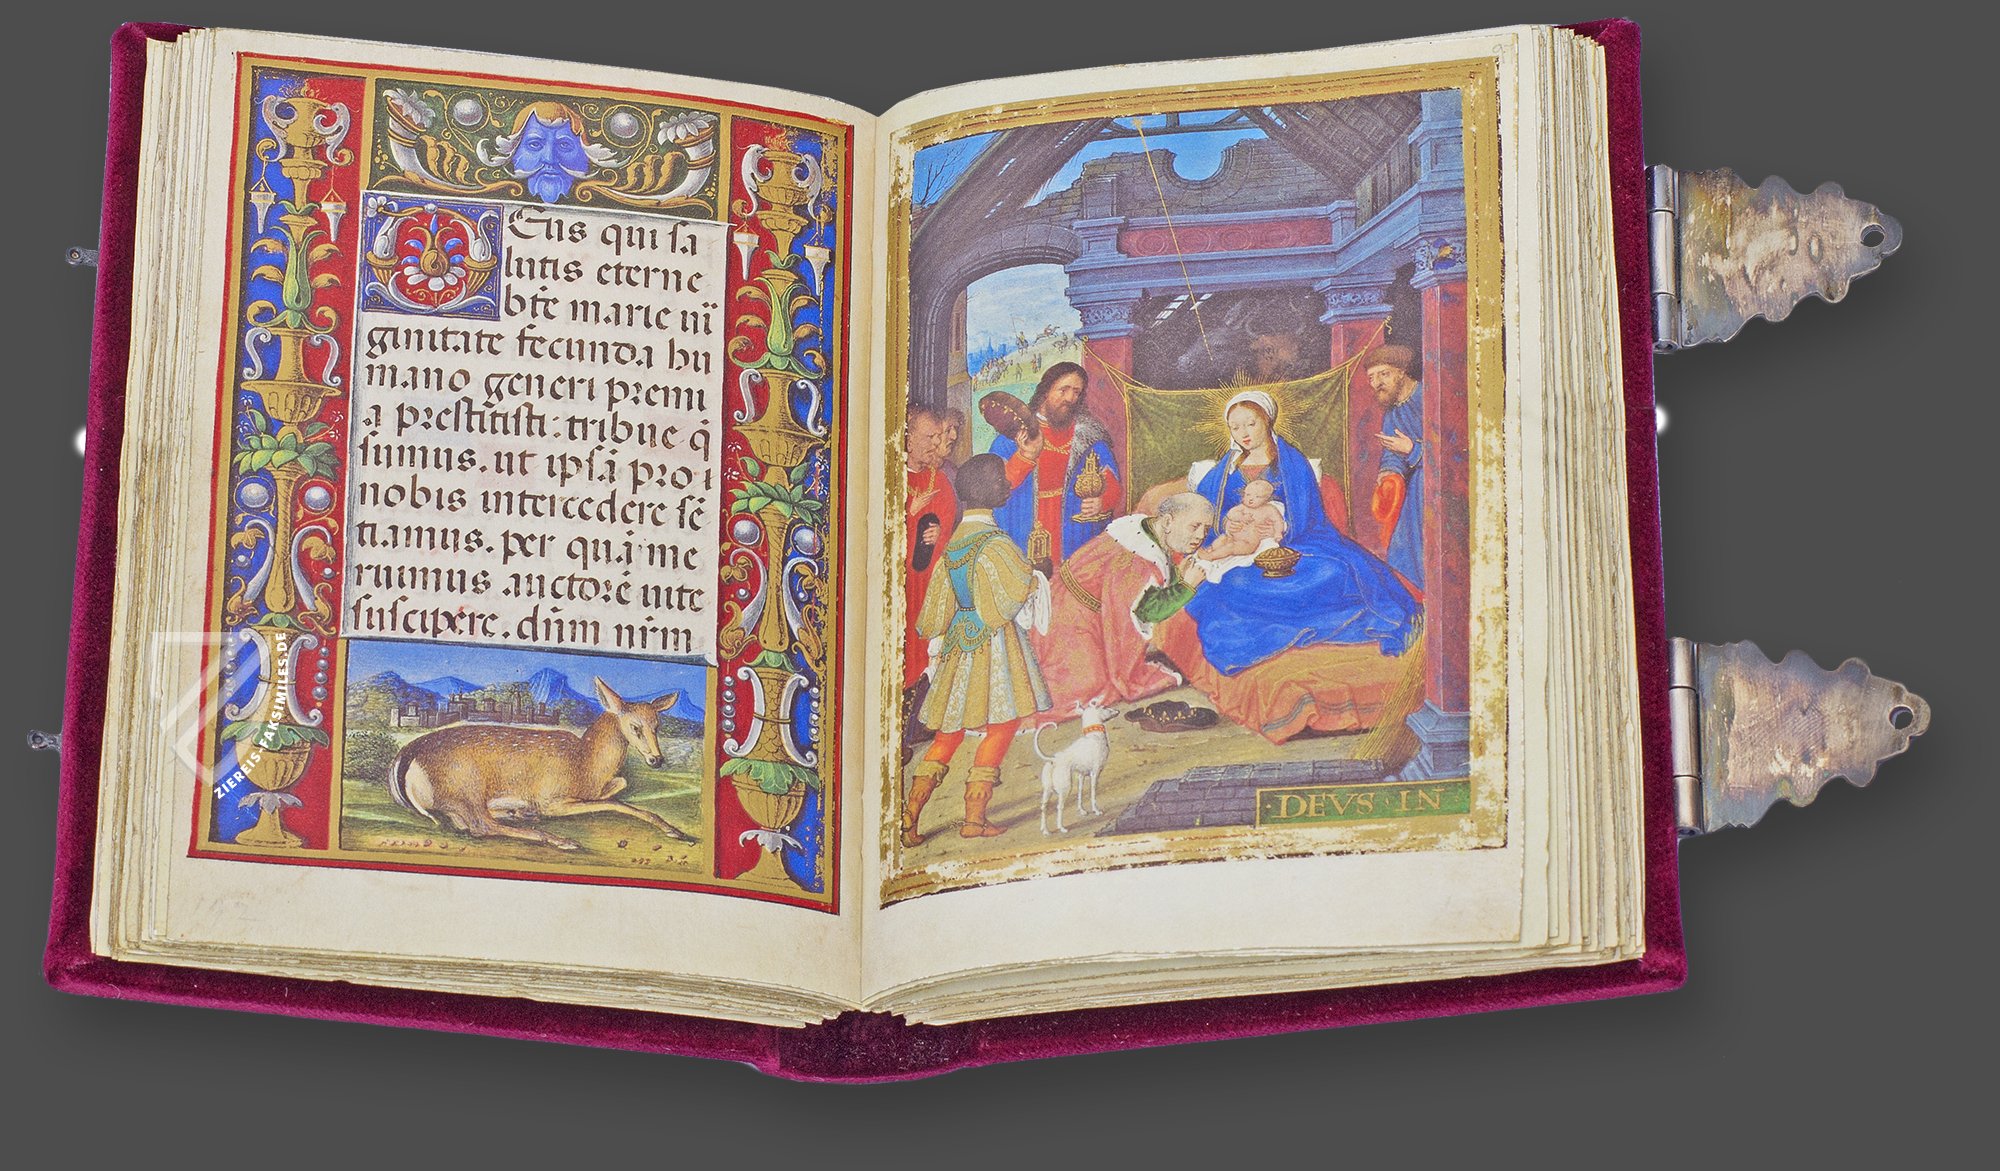 Eus qui sa
lutis eterne
bte marie vi
ginitate fecunda hu
mano generi premi
a prestitisti: tribue q̄
sumus. ut ipsā pro
nobis intercedere sē
tiamus. per quā me
ruimus auctorē vite
suscipere. dn̄m nr̄m
·DEVS·IN
ZIEREIS-FAKSIMILES.DE